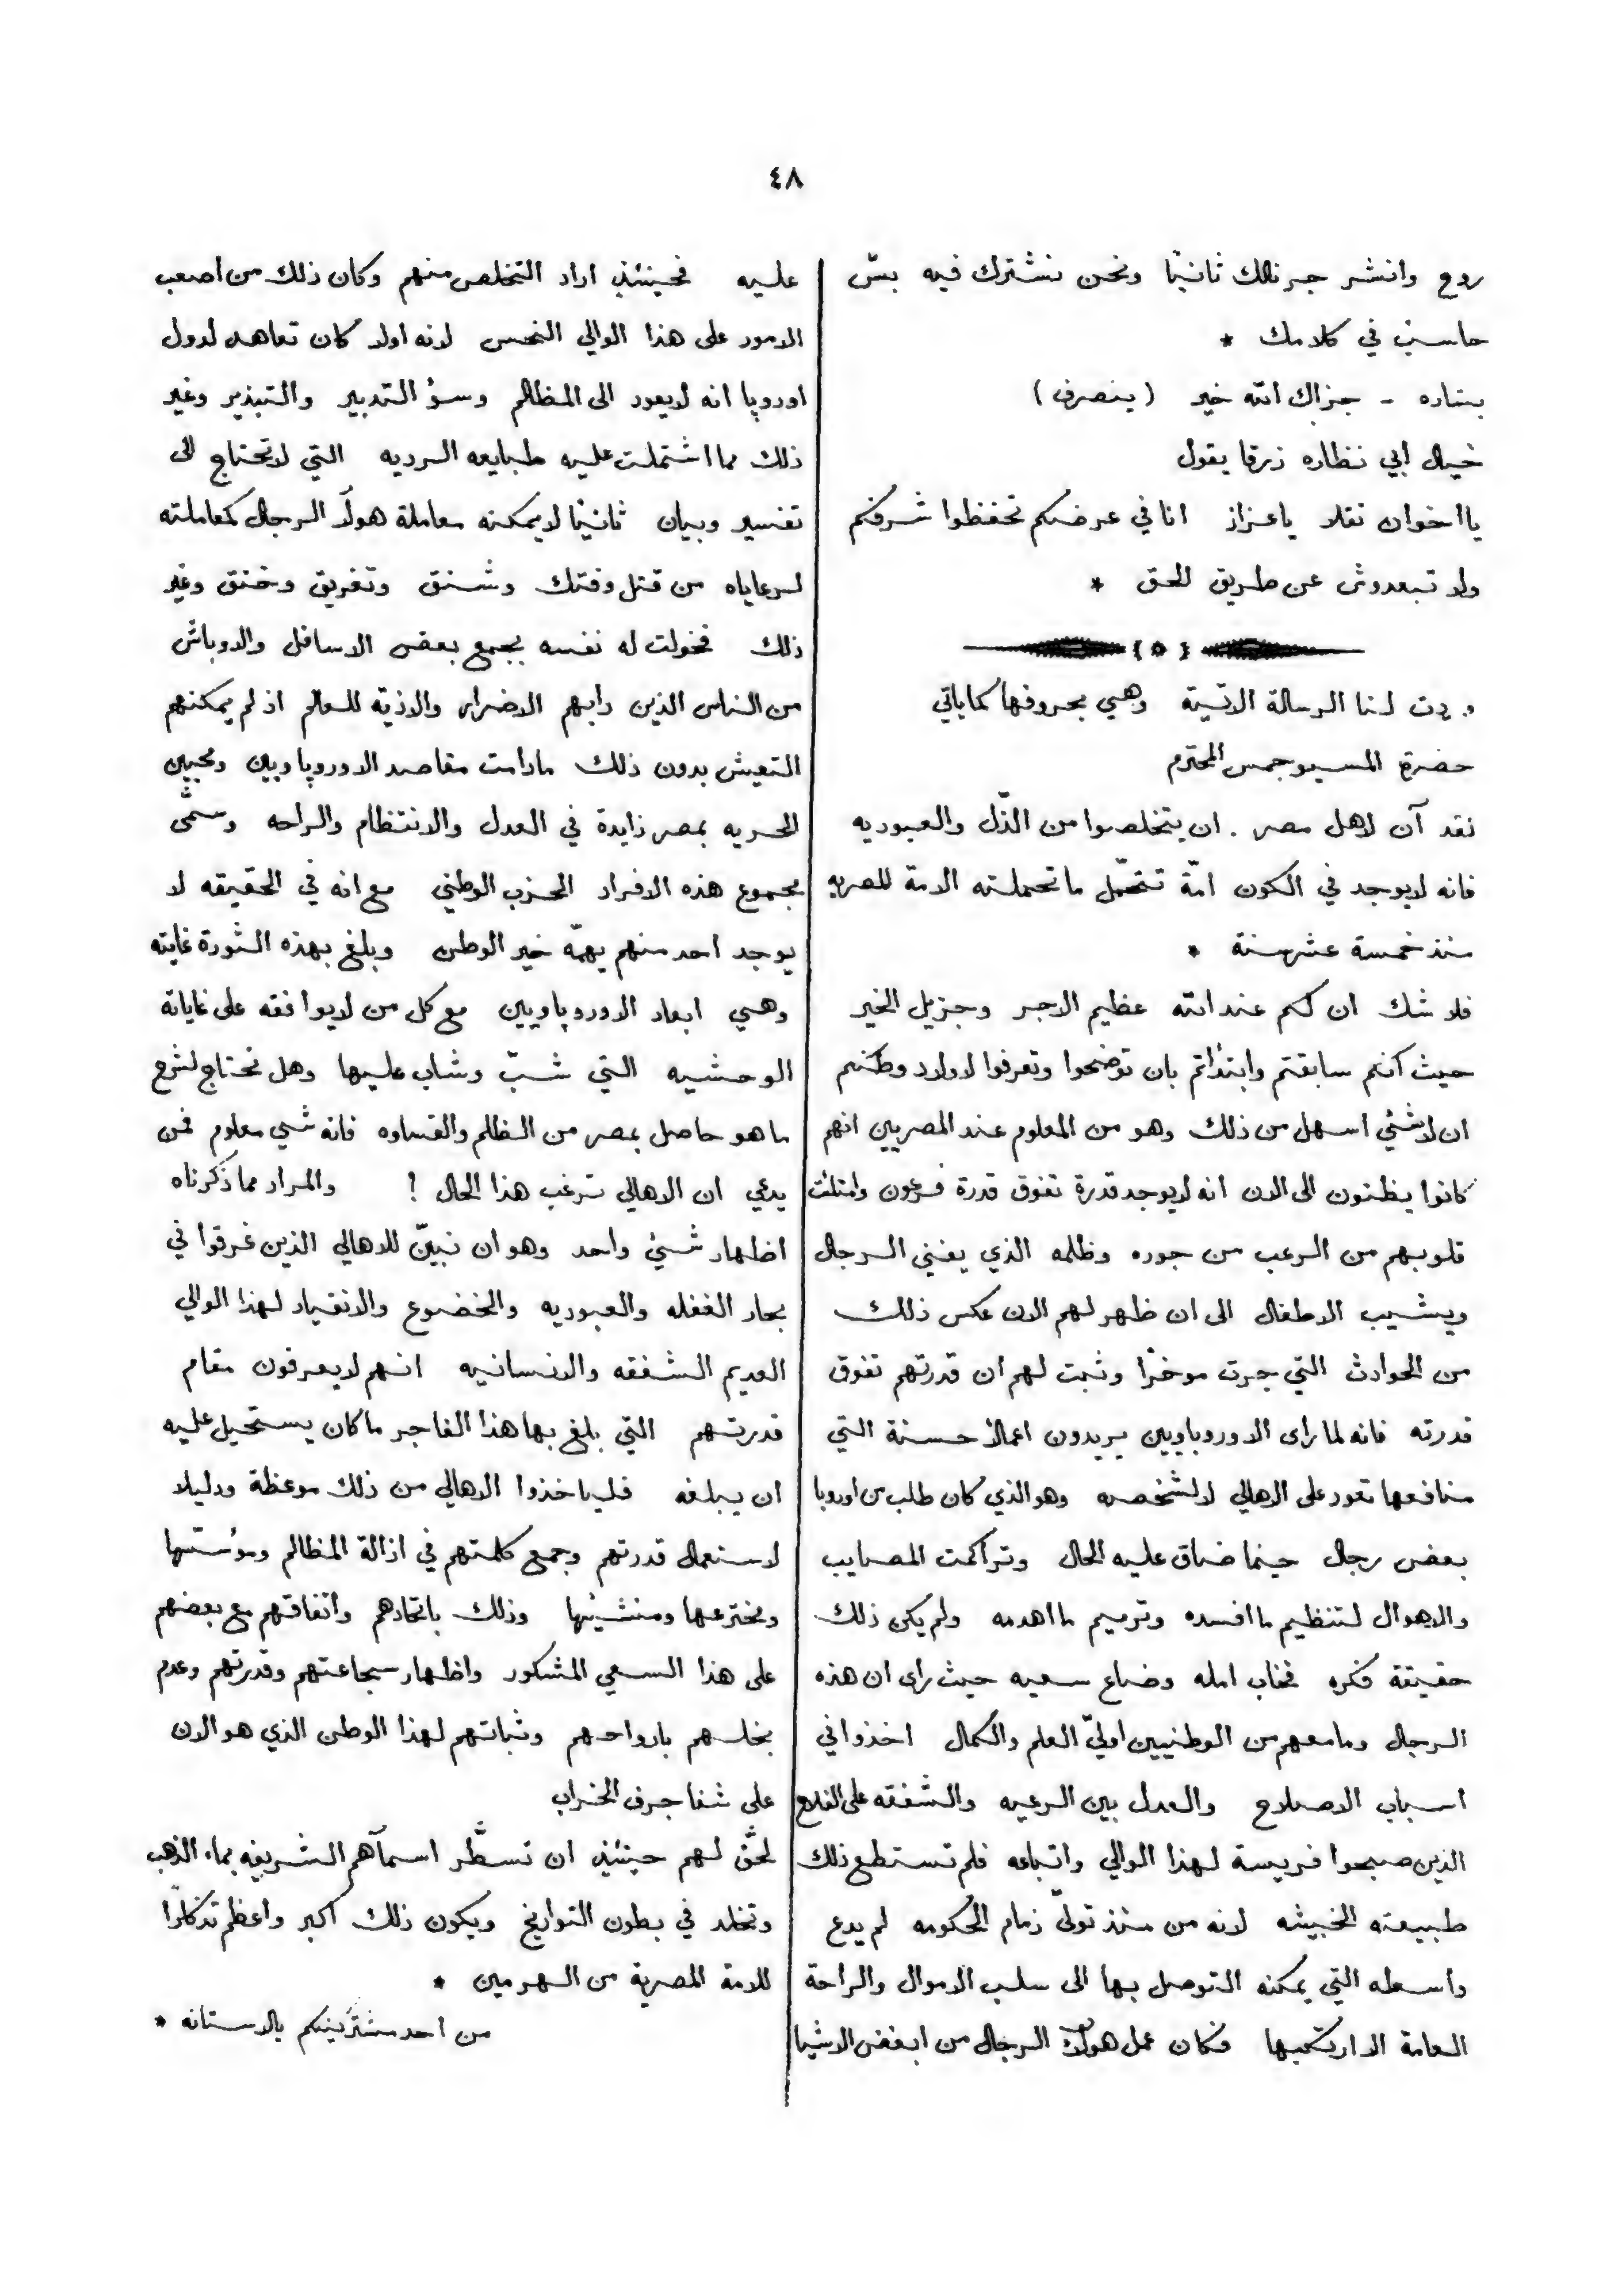 ٤٨
روح وانشر جرنالك ثانيًا ونحن نشترك فيه بسّ
حاسب في كلامك *
بشاره - جزاك الله خير (ينصرف)
خيال ابي نظاره زرقا يقول
يا اخوان نقلا يا عزاز انا في عرضكم تحفظوا شرفكم
ولا تبعدوش عن طريق الحق *
وردت لنا الرسالة الاتية وهي بحروفها كما ياتي
حضرة المسيو جمس المحترم
لقد آن لاهل مصر . ان يتخلصوا من الذّل والعبوديه
فانه لا يوجد في الكون امّة تتحمّل ما تحملته الامة المصريه
منذ خمسة عشر سنة *
فلا شك ان لكم عند الله عظيم الاجر وجزيل الخير
حيث انكم سابقتم وابتدأتم بان توضحوا وتعرفوا لاولاد وطنكم
ان لا شئي اسهل من ذلك وهو من المعلوم عند المصريين انهم
كانوا يظنون الى الان انه لا يوجد قدرة تفوق قدرة فرعون وامتلئت
قلوبهم من الرعب من جوره وظلمه الذي يفني الرجال
ويشيب الاطفال الى ان ظهر لهم الان عكس ذلك
من الحوادث التي جرت موخرًا وثبت لهم ان قدرتهم تفوق
قدرته فانه لما راى الاوروباويين يريدون اعمالاً حسنة التي
منافعها تعود على الاهالي لا لشخصه وهو الذي كان طلب من اوروبا
بعض رجال حينما ضاق عليه الحال وتراكمت المصايب
والاهوال لتنظيم ما افسده وترميم ما اهدمه ولم يكن ذلك
حقيقة فكره فخاب امله وضاع سعيه حيث راى ان هذه
الرجال وما معهم من الوطنيين اوليّ العلم والكمال اخذوا في
اسباب الاصلاح والعدل بين الرعيه والشفقه على الفلاح
الذين صبحوا فريسة لهذا الوالي واتباعه فلم تستطع ذلك
طبيعته الخبيثه لانه من منذ تولىّ زمام الحكومه لم يدع
واسطه التي يمكنه التوصل بها الى سلب الاموال والراحة
العامة الا ارتكبها فكان عمل هولآء الرجال من ابغض الاشيا
عليه فحينئذٍ اراد التخلص منهم وكان ذلك من اصعب
الامور على هذا الوالي النحس لانه اولا كان تعاهد لدول
اوروپا انه لا يعود الى المظالم وسؤ التدبير والتبذير وغير
ذلك مما اشتملت عليه طبايعه الرديه التي لا تحتاج الى
تفسير وبيان ثانيًا لا يمكنه معاملة هولآء الرجال كمعاملته
لرعاياه من قتل وفتك وشنق وتغريق وخنق وغير
ذلك فخولت له نفسه بجمع بعض الاسافل والاوباش
من الناس الذين دابهم الاضرار والاذية للعالم اذ لم يمكنهم
التعيش بدون ذلك مادامت مقاصد الاوروپاويين ومحبين
الحريه بمصر زايدة في العدل والانتظام والراحه وسمّى
مجموع هذه الافراد الحزب الوطني مع انه في الحقيقه لا
يوجد احد منهم يهمّه خير الوطن وبلغ بهذه الثورة غايته
وهي ابعاد الاوروپاويين مع كل من لا يوافقه على غاياته
الوحشيه التي شبّ وشاب عليها وهل نحتاج لشرح
ما هو حاصل بمصر من الظلم والقساوه فانه شي معلوم فمن
يدعي ان الاهالي ترغب هذا الحال ! والمراد مما ذكرناه
اظهار شئي واحد وهو ان نبيّن للاهالي الذين غرقوا في
بحار الغفله والعبوديه والخضوع والانقياد لهذا الوالي
العديم الشفقه والانسانيه انهم لا يعرفون مقام
قدرتهم التي بلغ بها هذا الفاجر ما كان يستحيل عليه
ان يبلغه فلياخذوا الاهالي من ذلك موعظة ودليلا
لاستعمال قدرتهم وجمع كلمتهم في ازالة المظالم ومؤسّسها
ومخترعها ومنشئيها وذلك باتحادهم واتفاقهم مع بعضهم
على هذا السعي المشكور واظهار شجاعتهم وقدرتهم وعدم
بخلهم بارواحهم وثباتهم لهذا الوطن الذي هو الان
على شفا جرف الخراب
لحقّ لهم حينئذٍ ان تسطّر اسمآهم الشريفه بماء الذهب
وتخلد في بطون التواريخ ويكون ذلك اكبر واعظم تذكارًا
للامة المصرية من الهرمين *
من احد مشتركينكم بالاستانه *